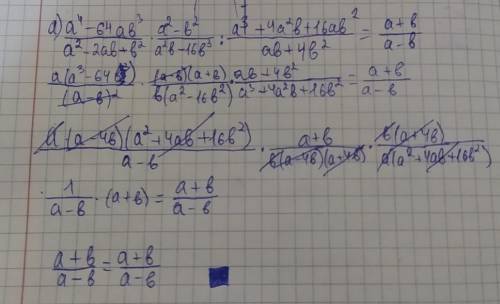 а) (a⁴-64ab³)/(a²-2ab+b²) · (a²-b²)/(a²b-16b³) : (a³+4a²b+16ab²)/(ab+4b²) = (a+b)/(a-b)
a(a³-64b³)/(a-b)² · (a-b)(a+b)/b(a²-16b²) · (ab+4b²)/(a³+4a²b+16b²) = (a+b)/(a-b)
a·(a-4b)(a²+4ab+16b²)/(a-b) · (a+b)/b(a-4b)(a+4b) · b(a+4b)/a(a²+4ab+16b²)
· 1/(a-b) · (a+b) = (a+b)/(a-b)
(a+b)/(a-b) = (a+b)/(a-b)